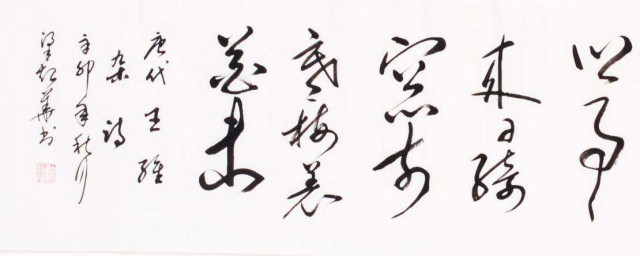 乡事
来日绮
窗前
寒梅著
花未
唐代王维
杂诗
辛卯年秋月
梁华书